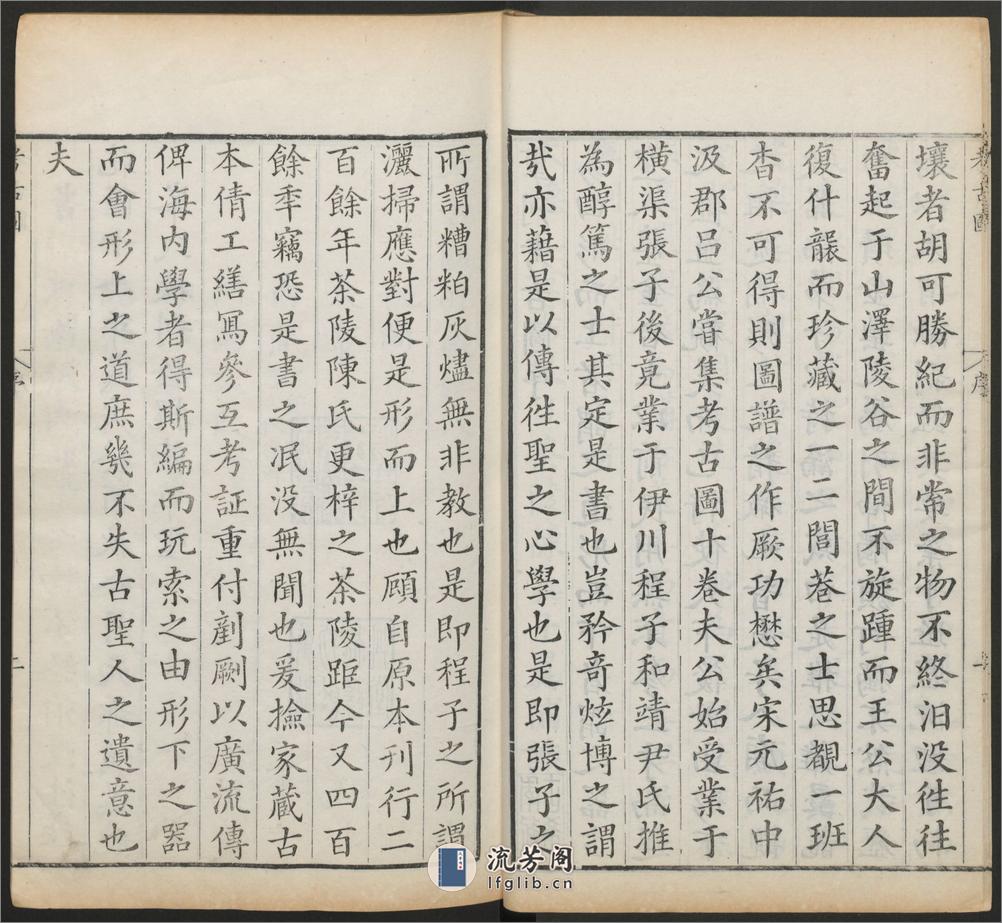 壤者胡可勝紀而非常之物不終汩没徃徃
奮起于山澤陵谷之間不旋踵而王公大人
復什襲而珍藏之一二閭巷之士思覩一班
杳不可得則圖譜之作厥功懋矣宋元祐中
汲郡呂公嘗集考古圖十卷夫公始受業于
橫渠張子後竟業于伊川程子和靖尹氏推
為醇篤之士其定是書也豈矜竒炫博之謂
㢤亦藉是以傳徃聖之心學也是即張子之
所謂糟粕灰燼無非教也是即程子之所謂
灑掃應對便是形而上也顧自原本刊行二
百餘年茶陵陳氏更梓之茶陵距今又四百
餘年竊恐是書之泯没無聞也爰撿家藏古
本倩工繕冩參互考証重付剞劂以廣流傳
俾海内學者得斯編而玩索之由形下之器
而會形上之道庶㡬不失古聖人之遺意也
夫
考古圖
序
二
流芳阁
lfglib.cn